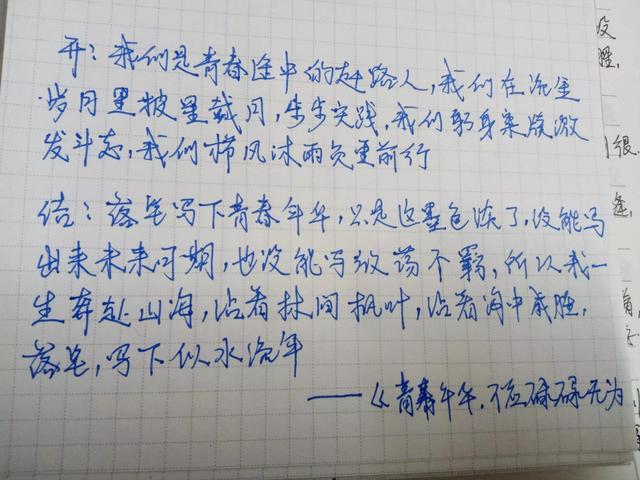 开：我们是青春途中的赶路人，我们在流金
岁月里披星戴月，步步实践，我们躬身亲候激
发斗志，我们栉风沐雨负重前行
结：落笔写下青春年华，只是这墨色淡了，没能写
出来未来可期，也没能写放荡不羁，所以我一
生奔赴山海，沾着林间枫叶，沾着海中咸腥，
落笔，写下似水流年
——《青春年华，不应碌碌无为
没
胜，
很
逢，